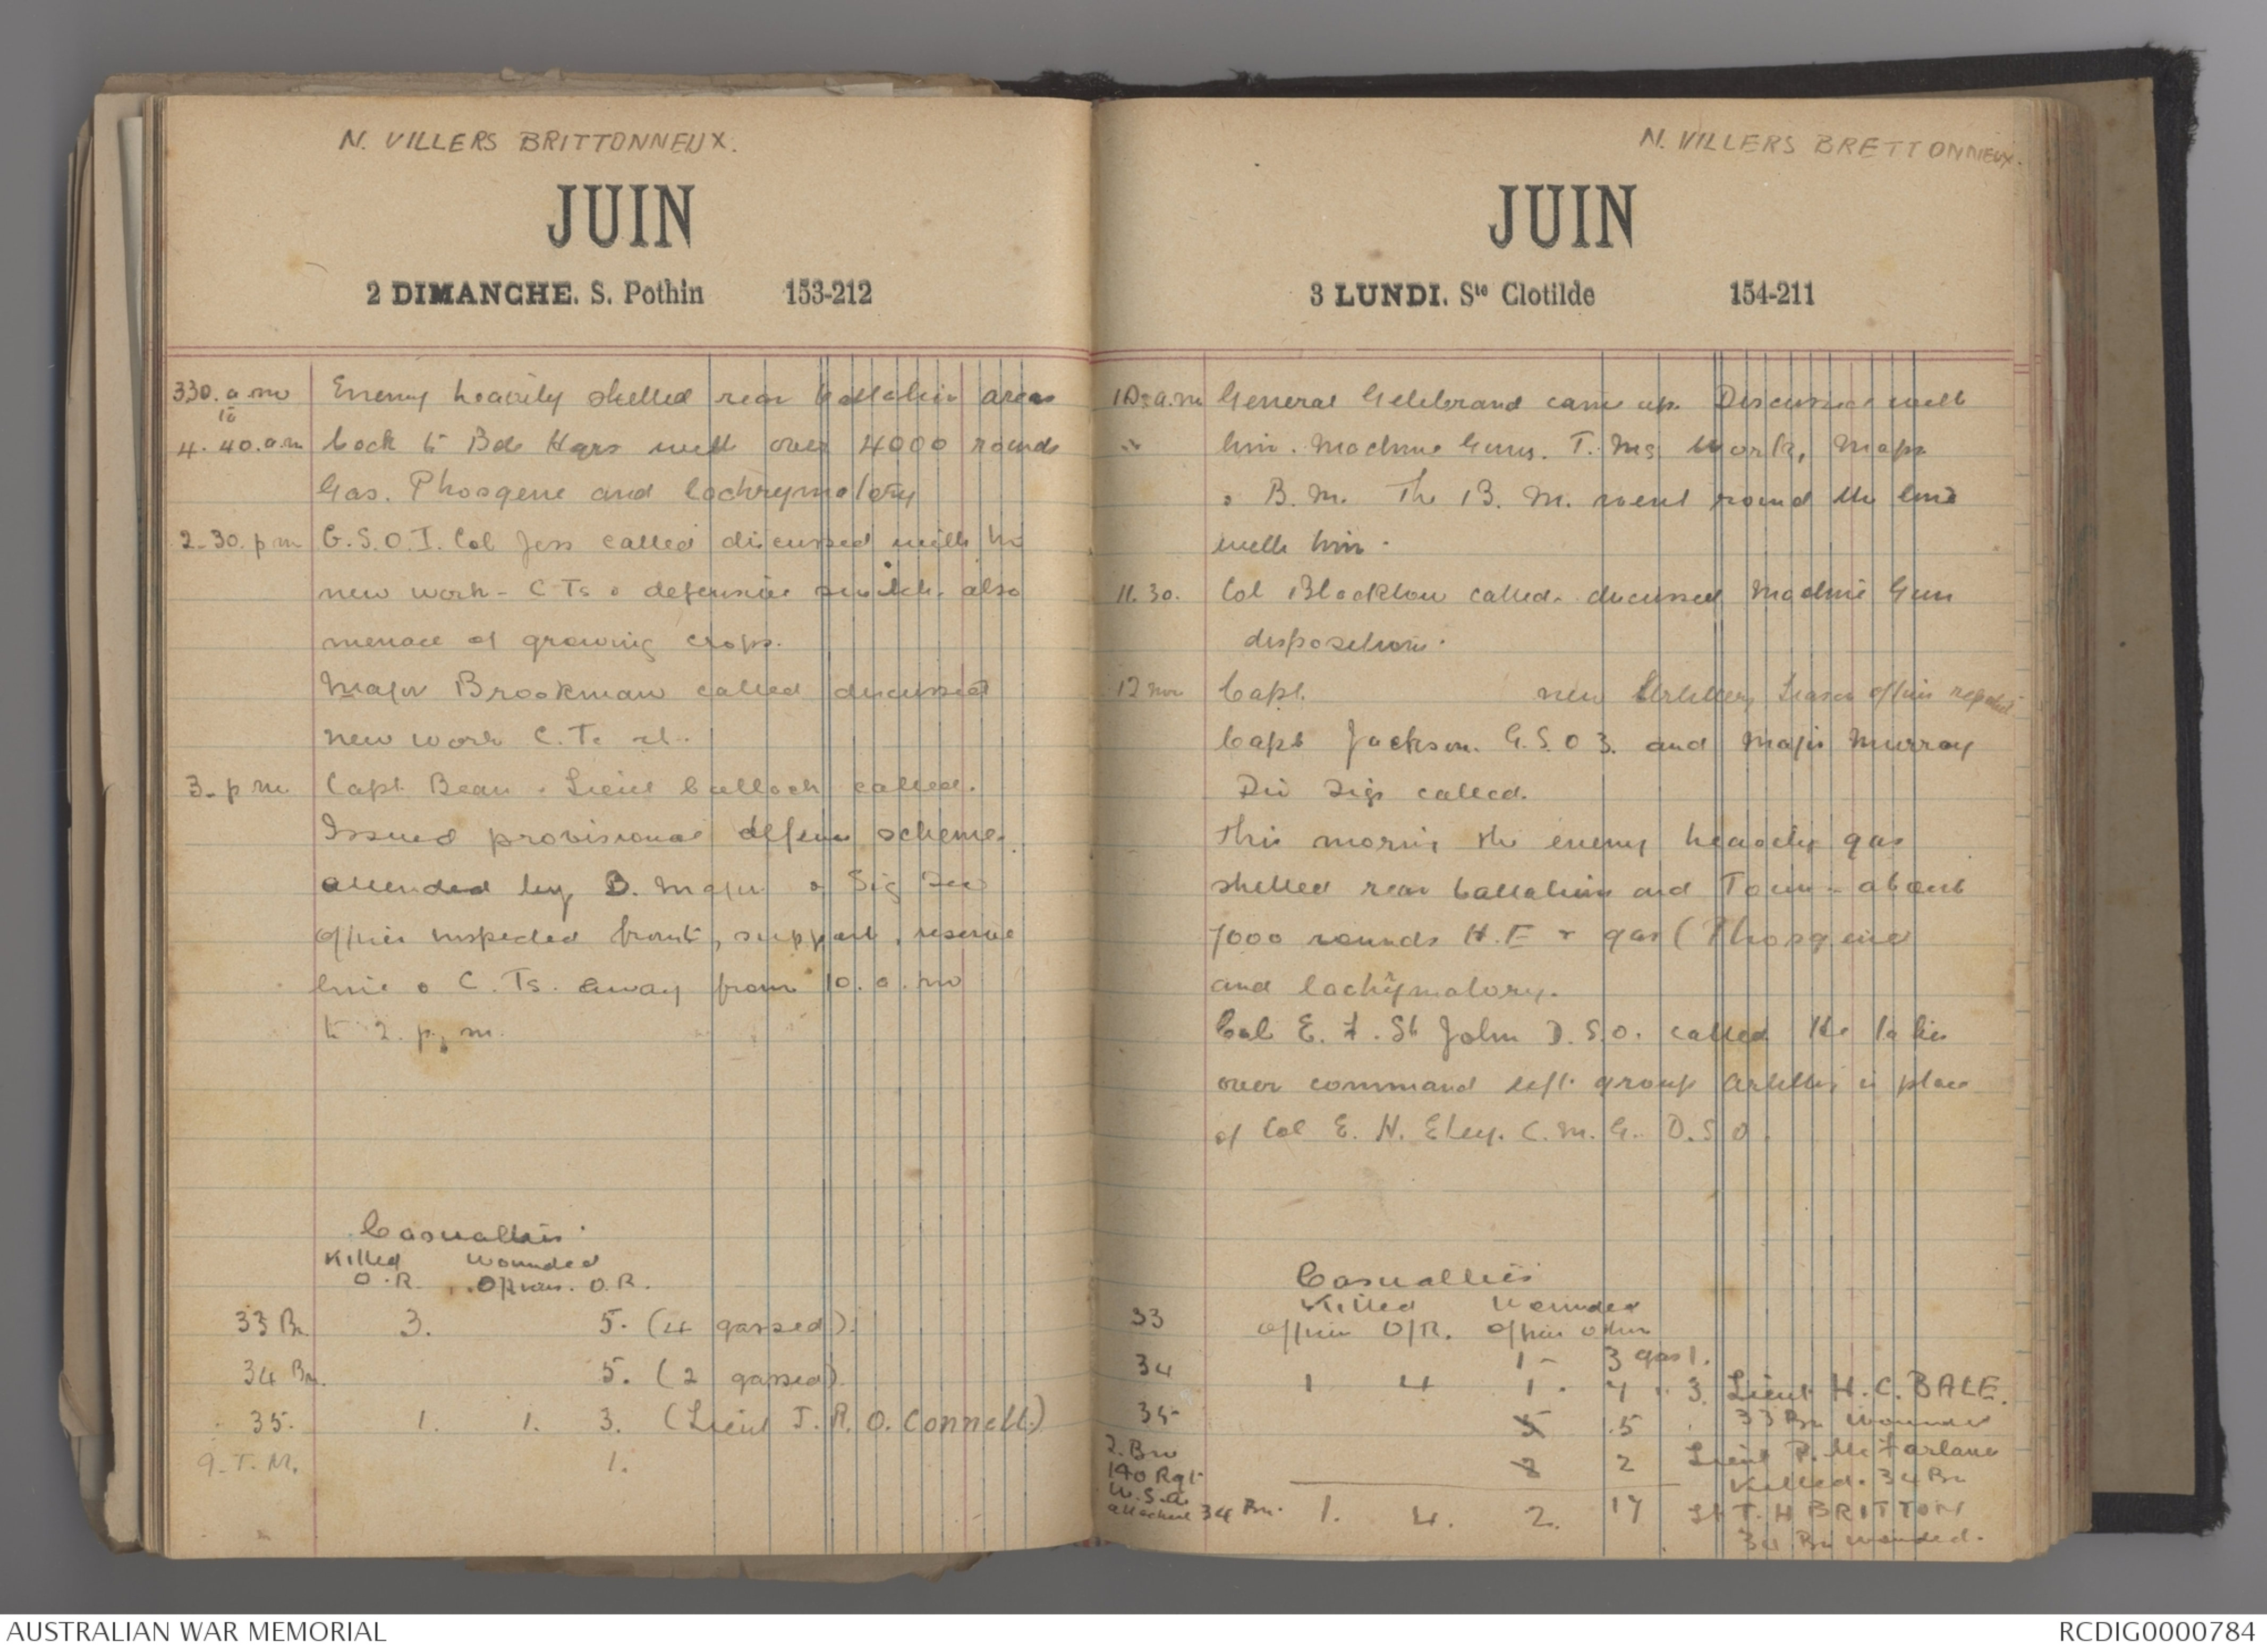 N. VILLERS BRITTONNEUX.
JUIN
2 DIMANCHE. S. Pothin 153-212
330. a.m Enemy heavily shelled rear battalion areas
to
4. 40. a.m back to Bde Hqrs with over 4000 rounds
Gas. Phosgene and lachrymatory
2-30. p m G.S.O.I. Col Jess called discussed with me
new work - C Ts & defensive switch. also
menace of growing crops.
Major Brookman called discussed
new work C. Ts
3. p m Capt. Bean & Lieut balloch called.
Issued provisional defence scheme.
attended by B. Major & Sig
Officer inspected front, support, reserve
line & C. Ts. away from 10. a. m
to 2. p. m.
Casualties
Killed Wounded
O.R. Officers. O.R.
33 Bn. 3. 5. (4 gassed).
34 Bn. 5. (2 gassed).
35. 1. 1. 3. (Lieut J. R. O. Connell.)
9. T. M. 1.
N. VILLERS BRETTONNIEUX.
JUIN
3 LUNDI. Ste Clotilde 154-211
10 a.m General Gelebrand came up. Discussed with
him. Machine Guns. T. Ms work, Maps
& B. M. The B. M. went round the line
with him.
11.30. Col Blacklow called. discussed Machine Gun
dispositions.
12 nn Capt. new Artillery Liason officer reported
Capt Jackson. G.S.O 3. and Major Murray
Div Sigs called.
This morning the enemy heavily gas
shelled rear battalion and Town - about
7000 rounds H.E & gas (Phosgene
and lachrymatory.
Col E. F. St John D.S.O. called He takes
over command left group Artillery in place
of Col E. H. Eley. C. M. G. D.S O.
Casualties
33 Killed Wounded
officer O/R. officer other
34 1 - 3 gas 1.
1 4 1. 7. 3. Lieut H. C. BALE.
35 5 .5 33 Bn wounded
2. Bn 2 2 Lieut P. McFarlane
140 Rgt Killed. 34 Bn
U.S.A.
attached 34 Bn. 1. 4. 2. 17 Lt T. H BRITTON
34 Bn wounded.
AUSTRALIAN WAR MEMORIAL RCDIG0000784